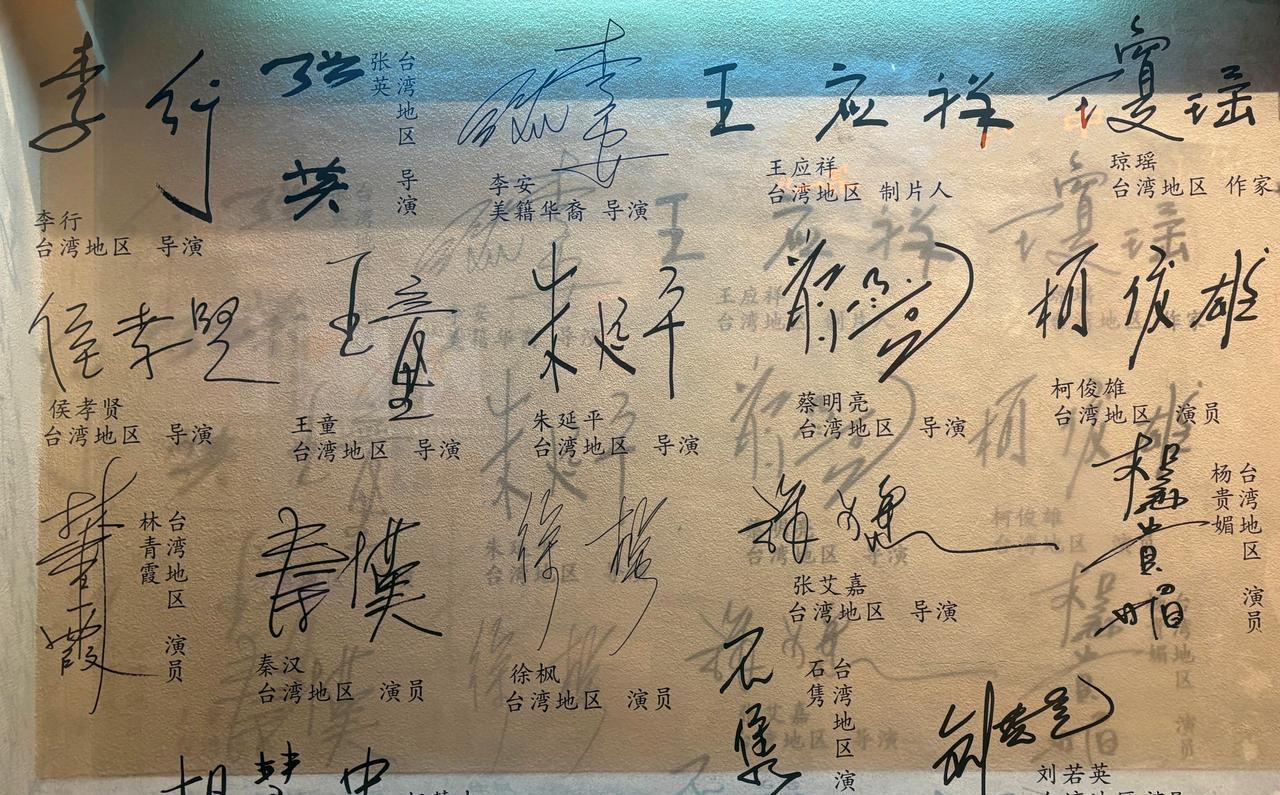 李行
李行
台湾地区 导演
张英
张英
台湾地区 导演
李安
李安
美籍华裔 导演
王应祥
王应祥
台湾地区 制片人
琼瑶
台湾地区 作家
侯孝贤
台湾地区 导演
王童
王童
台湾地区 导演
朱延平
朱延平
台湾地区 导演
蔡明亮
台湾地区 导演
柯俊雄
柯俊雄
台湾地区 演员
林青霞
台湾地区 演员
秦漢
秦汉
台湾地区 演员
徐楓
徐枫
台湾地区 演员
张艾嘉
台湾地区 导演
楊貴媚
杨贵媚
台湾地区 演员
石隽
石隽
台湾地区 演
刘若英